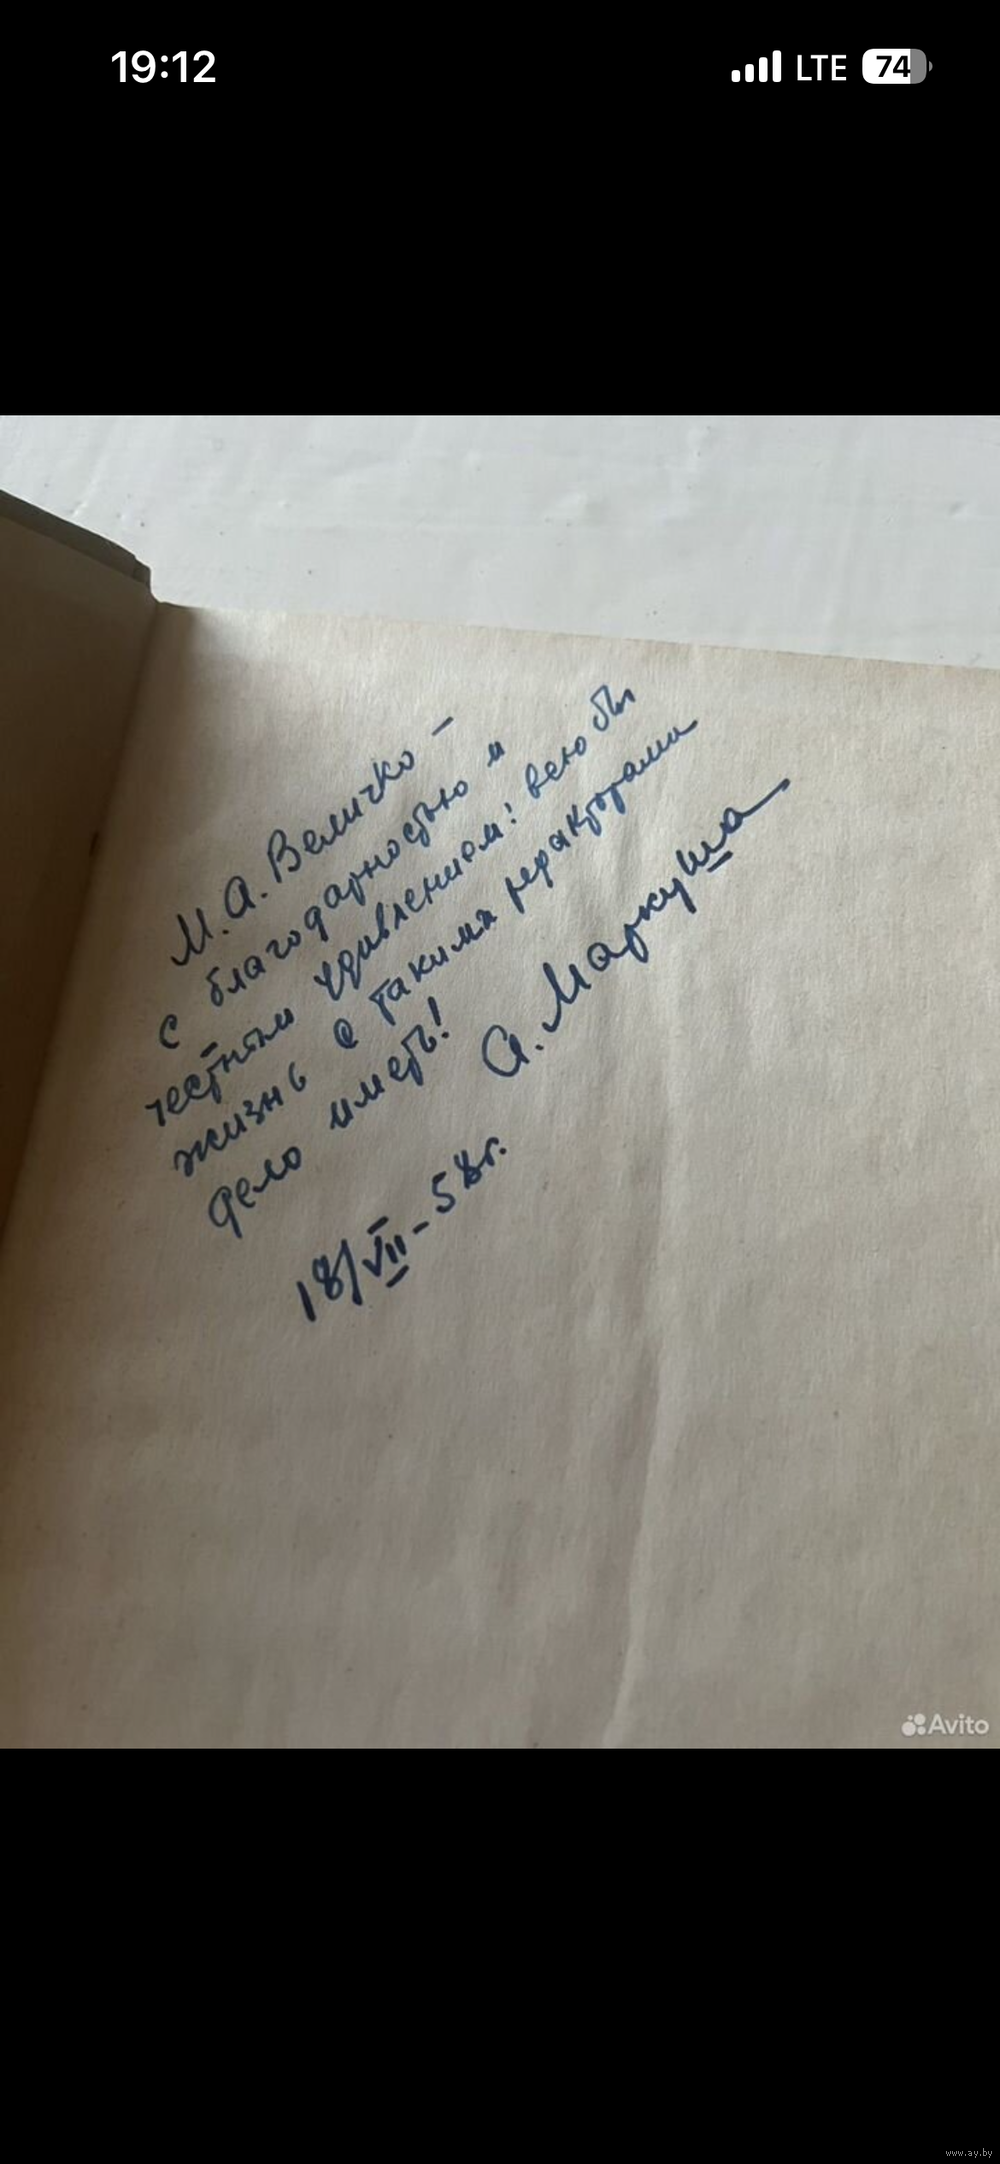 19:12
LTE 74
М. А. Величко –
с благодарностью и
честным удивлением: всю бы
жизнь с такими редакторами
дело иметь!
А. Маркуша
18/VII – 58 г.
Avito
www.ay.by